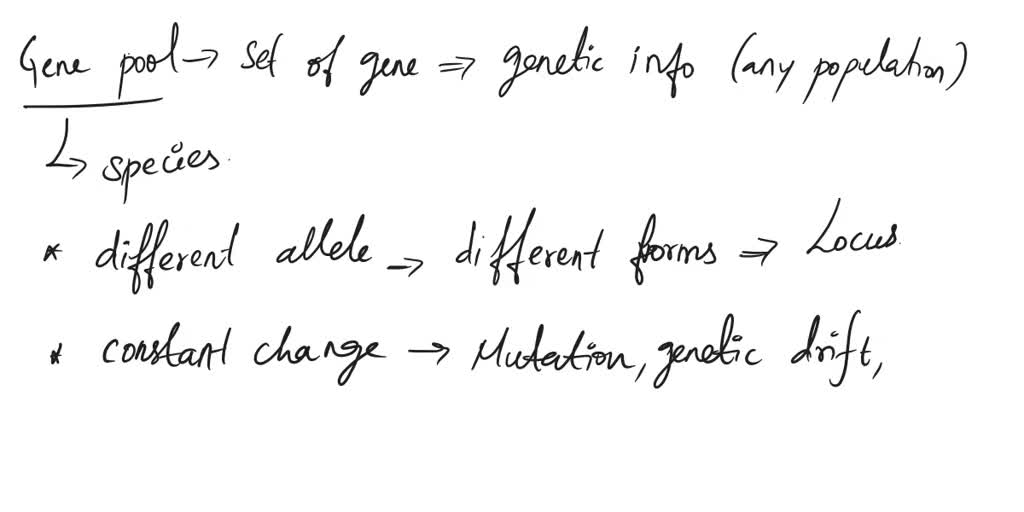 Gene pool → set of gene ⇒ genetic info (any population)
↳ species.
* different allele → different forms ⇒ Locus.
* constant change → Mutation, genetic drift,